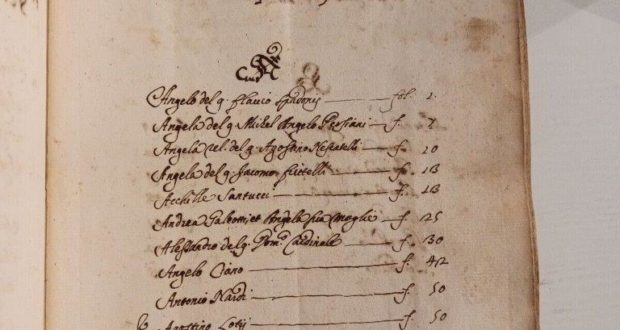 A
Angelo del q. Flavio
fol. 1
Angela del q. Michel Angelo f. 7
Angela rel. del q. Agostino f. 10
Angela del q. Jacomo f. 18
Achille Santucci f. 18
Andrea Galeotti et Angela sua Moglie f. 25
Alessandro del q. Dom.co Cardinale f. 30
Angelo Ciano f. 42
Antonio Nardi f. 50
Agostino f. 50